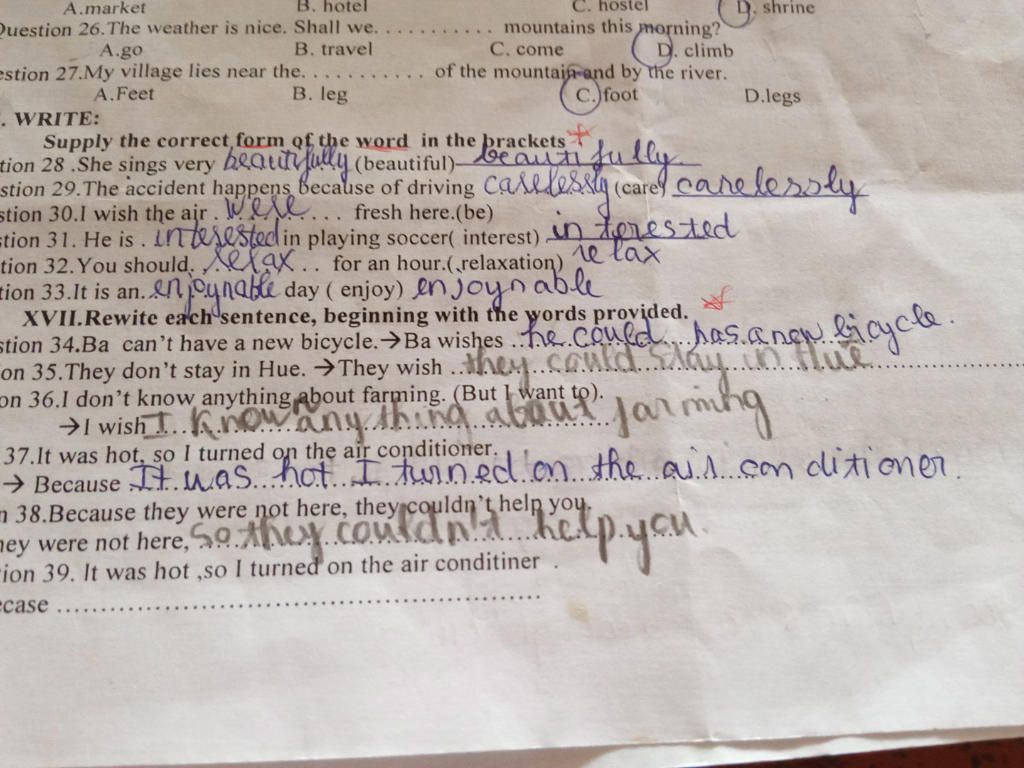 A.market B. hotel C. hostel D. shrine
Question 26.The weather is nice. Shall we........... mountains this morning?
A.go B. travel C. come D. climb
estion 27.My village lies near the........... of the mountain and by the river.
A.Feet B. leg C. foot D.legs
. WRITE:
Supply the correct form of the word in the brackets
tion 28 .She sings very beautifully (beautiful) beautifully
stion 29.The accident happens because of driving carelessly (care) carelessly
stion 30.I wish the air . were ... fresh here.(be)
stion 31. He is . interested in playing soccer( interest) interested
tion 32.You should. relax .. for an hour.( relaxation) relax
tion 33.It is an..enjoynable day ( enjoy) enjoynable
XVII.Rewite each sentence, beginning with the words provided.
stion 34.Ba can't have a new bicycle.→Ba wishes ..he could has a new bicycle.
on 35.They don't stay in Hue. →They wish ..they could stay in Hue
on 36.I don't know anything about farming. (But I want to).
→I wish I known any thing about farming
37.It was hot, so I turned on the air conditioner.
→ Because It was hot I turned on the air con ditioner.
n 38.Because they were not here, they couldn't help you.
hey were not here, So they couldn't help you.
ion 39. It was hot ,so I turned on the air conditiner .
ecase ..................................................